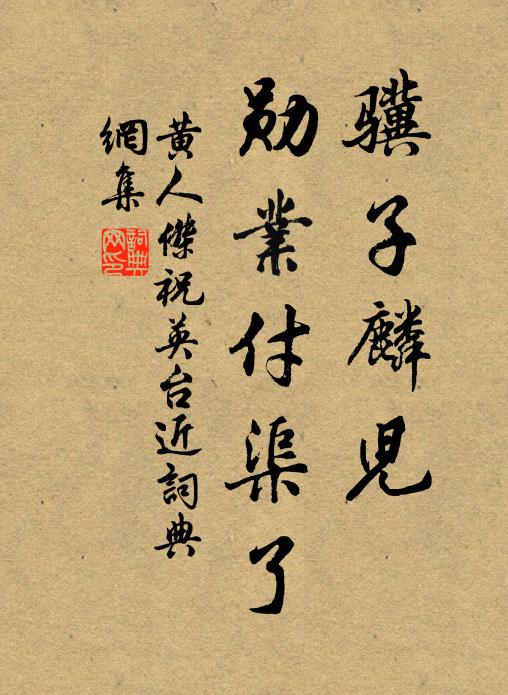 骥子麟兒
勛業付渠了
黄人傑祝英台近詞典
網集
詞典
网印